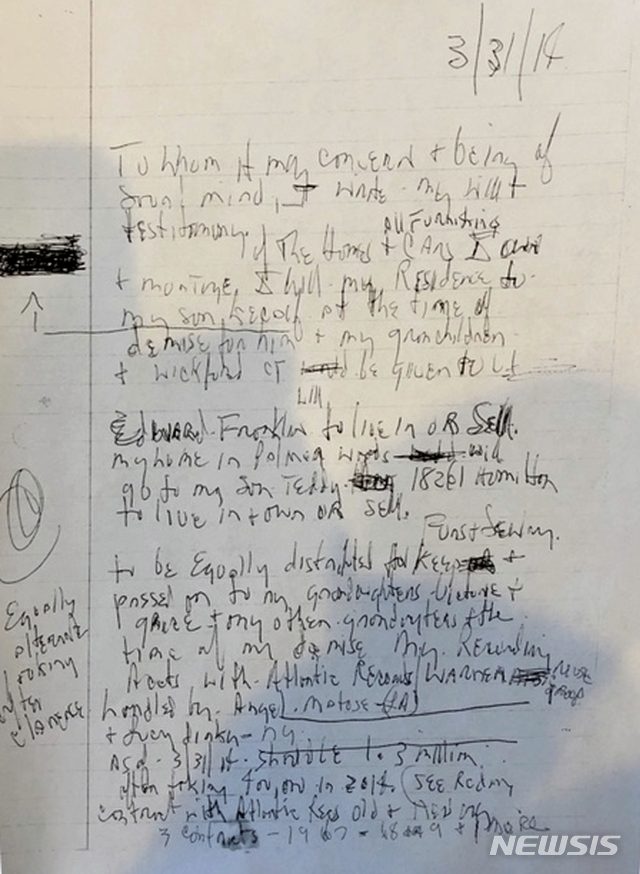 3/31/14
To Whom it may concern & being of
sound mind, I write my will &
testimony.
All Furnishing
of The Homes & CARS I own
& mortage, I will my Residence to
my son, Kecalf at the time of
demise for him & my granchildren
& Wickford CT be given to
will
Edward Franklin to live in OR Sell.
my home in Palmer Woods will
go to my son Teddy. 18261 Hamilton
to live in & own OR sell.
Furs & Jewlry.
to be Equally distributed for keep &
passed on to my grandaughters Victorie &
Grace & any other grandaughters @ the
time of my demise My Recording
Accts with Atlantic Records/WARNER
handled by Angel
& ny
As of 3/31/14 should be 1.3 million
after taking in 2014. (See
contract with Atlantic Recs Old & New
3 contracts - 1967 - 68 &
Equally
alternate
Clarence
NEWSIS